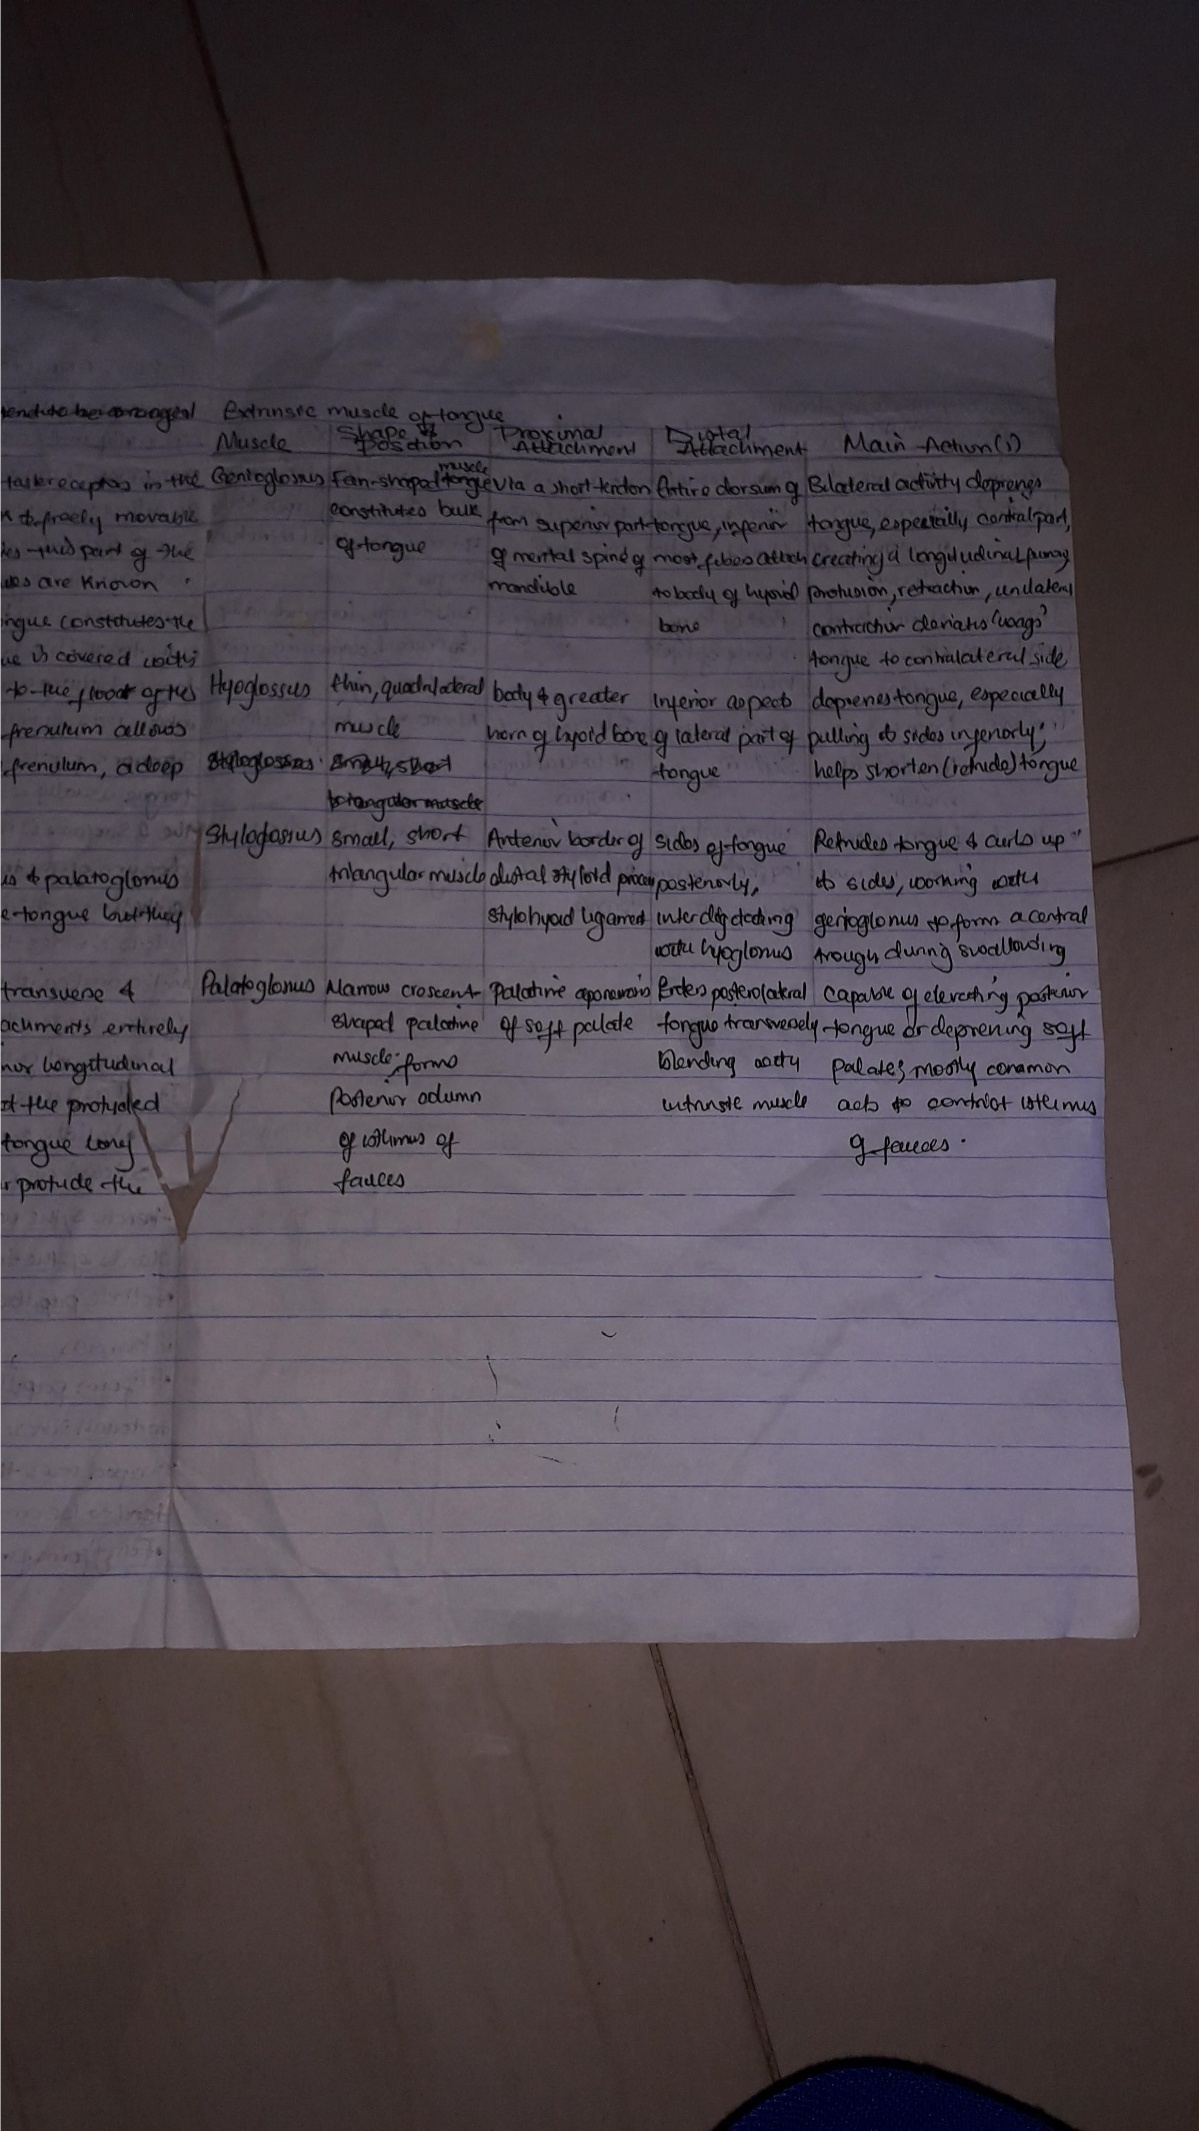 tend to be arranged
taste receptors in the
freely movable
this part of the
are known
ngue constitutes the
ue is covered with
to the floor of the
frenulum allows
frenulum, a deep
is & palatoglossus
e tongue but they
transverse &
achments entirely
nor longitudinal
the protruded
tongue long
r protude the
Extrinsic muscle of tongue
Muscle
Shape & Position
Proximal Attachment
Distal Attachment
Main Action(s)
Genioglossus
Fan-shaped muscle
constitutes bulk
of tongue
via a short tendon
from superior part
of mental spine of
mandible
Entire dorsum of
tongue, inferior
most fibes attach
to body of hyoid
bone
Bilateral activity depresses
tongue, especially central part,
creating a longitudinal
protusion, retraction, unilateral
contraction deviates (wags)
tongue to contralateral side
Hyoglossus
thin, quadrilateral
muscle
body & greater
horn of hyoid bone
Inferior aspects
of lateral part of
tongue
depresses tongue, especially
pulling its sides inferiorly,
helps shorten (retrude) tongue
Styloglossus
small, short
triangular muscle
Styloglossus
small, short
triangular muscle
Anterior border of
distal styloid process
stylohyoid ligament
sides of tongue
posteriorly,
interdigitating
with hyoglossus
Retrudes tongue & curls up
its sides, working with
genioglossus to form a central
trough during swallowing
Palatoglossus
Narrow crescent-
shaped palatine
muscle; forms
Posterior column
of isthmus of
fauces
Palatine aponeurosis
of soft palate
Enters posterolateral
tongue transversely
blending with
intrinsic muscle
Capable of elevating posterior
tongue or depressing soft
palate; mostly common
acts to constrict isthmus
of fauces.